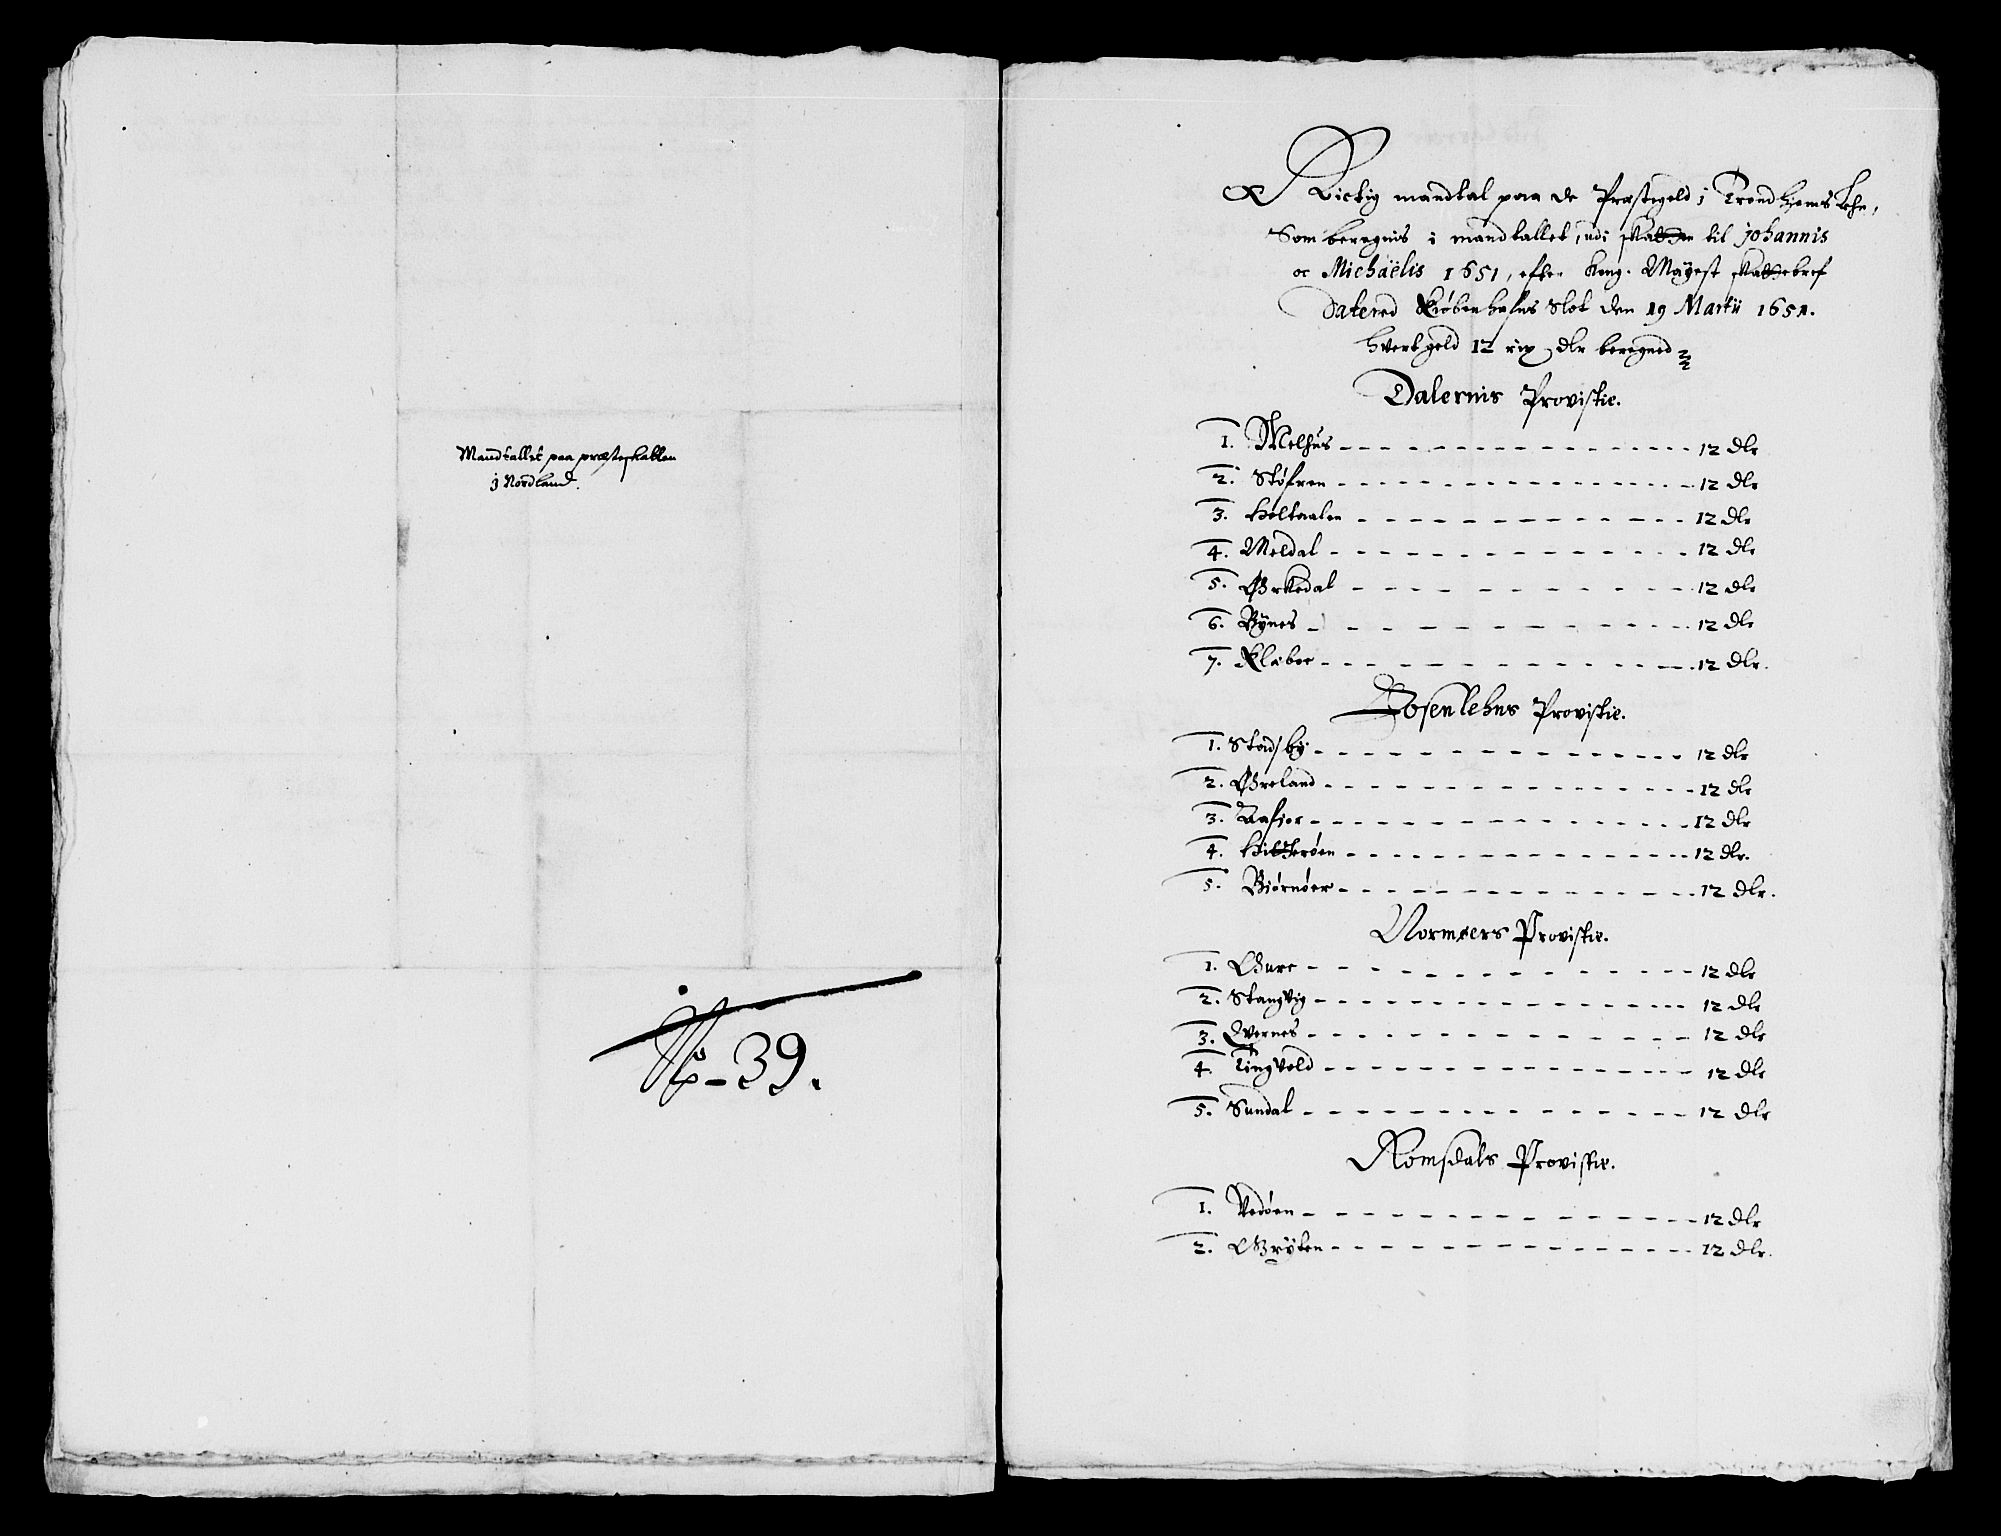 Mandtallet paa præsteskatten
j Nordland.
No- 39.
Rictig mandtal paa de Præstegeld j Trondhjems Lehn,
Som beregnis i mandtallet, udi skatten til Johannis
oc Michaëlis 1651, efter Kong. Mayest skattebref
Datered Kiøbenhafns Slot den 19 Martii 1651.
hvert geld 12 rix dlr beregned
Dalernis Provistie.
1. Melhus - - - 12 dlr
2. Støfren - - - 12 dlr
3. Holtaalen - - - 12 dlr
4. Meldal - - - 12 dlr
5. Ørkedal - - - 12 dlr
6. Bynes - - - 12 dlr
7. Klæboe - - - 12 dlr.
Fosenlehns Provistie.
1. Stadsby - - - 12 dlr
2. Øreland - - - 12 dlr
3. Aafior - - - 12 dlr
4. Hitterøen - - - 12 dlr.
5. Biørnøer - - - 12 dlr.
Normøers Provistie.
1. Øure - - - 12 dlr
2. Stangvig - - - 12 dlr
3. Qvernes - - - 12 dlr
4. Tingvold - - - 12 dlr
5. Sundal - - - 12 dlr
Romsdals Provistie.
1. Vedøen - - - 12 dlr
2. Grÿten - - - 12 dlr.